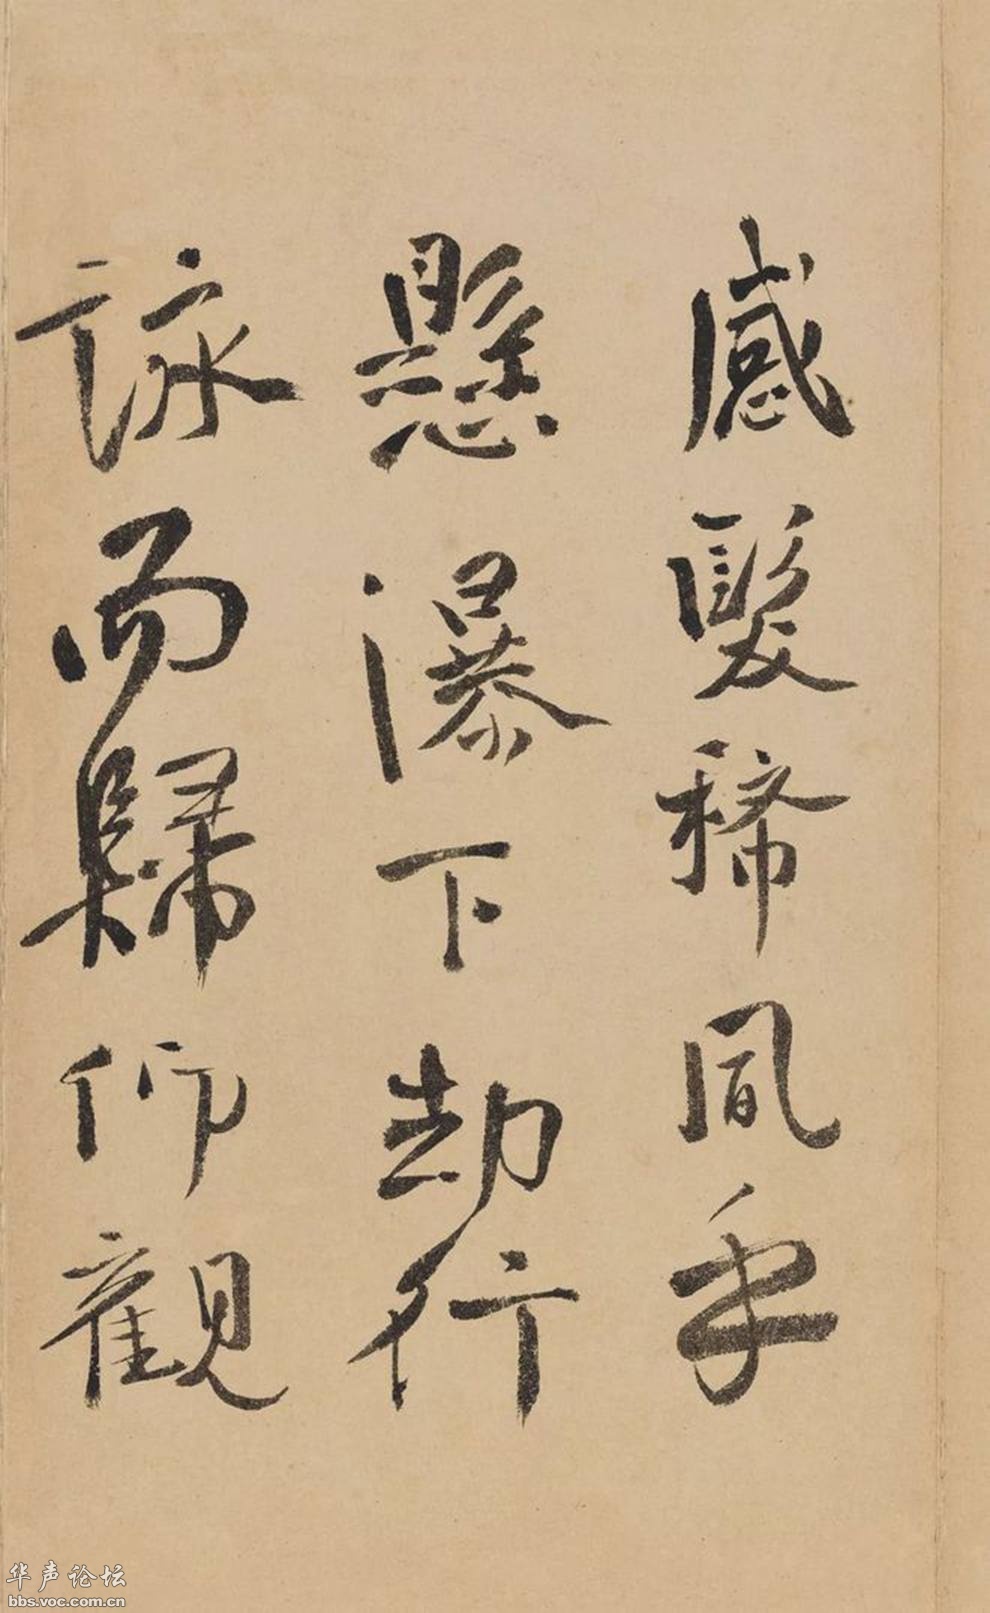 感髮稀風乎
懸瀑下却行
詠而歸仰觀
华声论坛
bbs.voc.com.cn